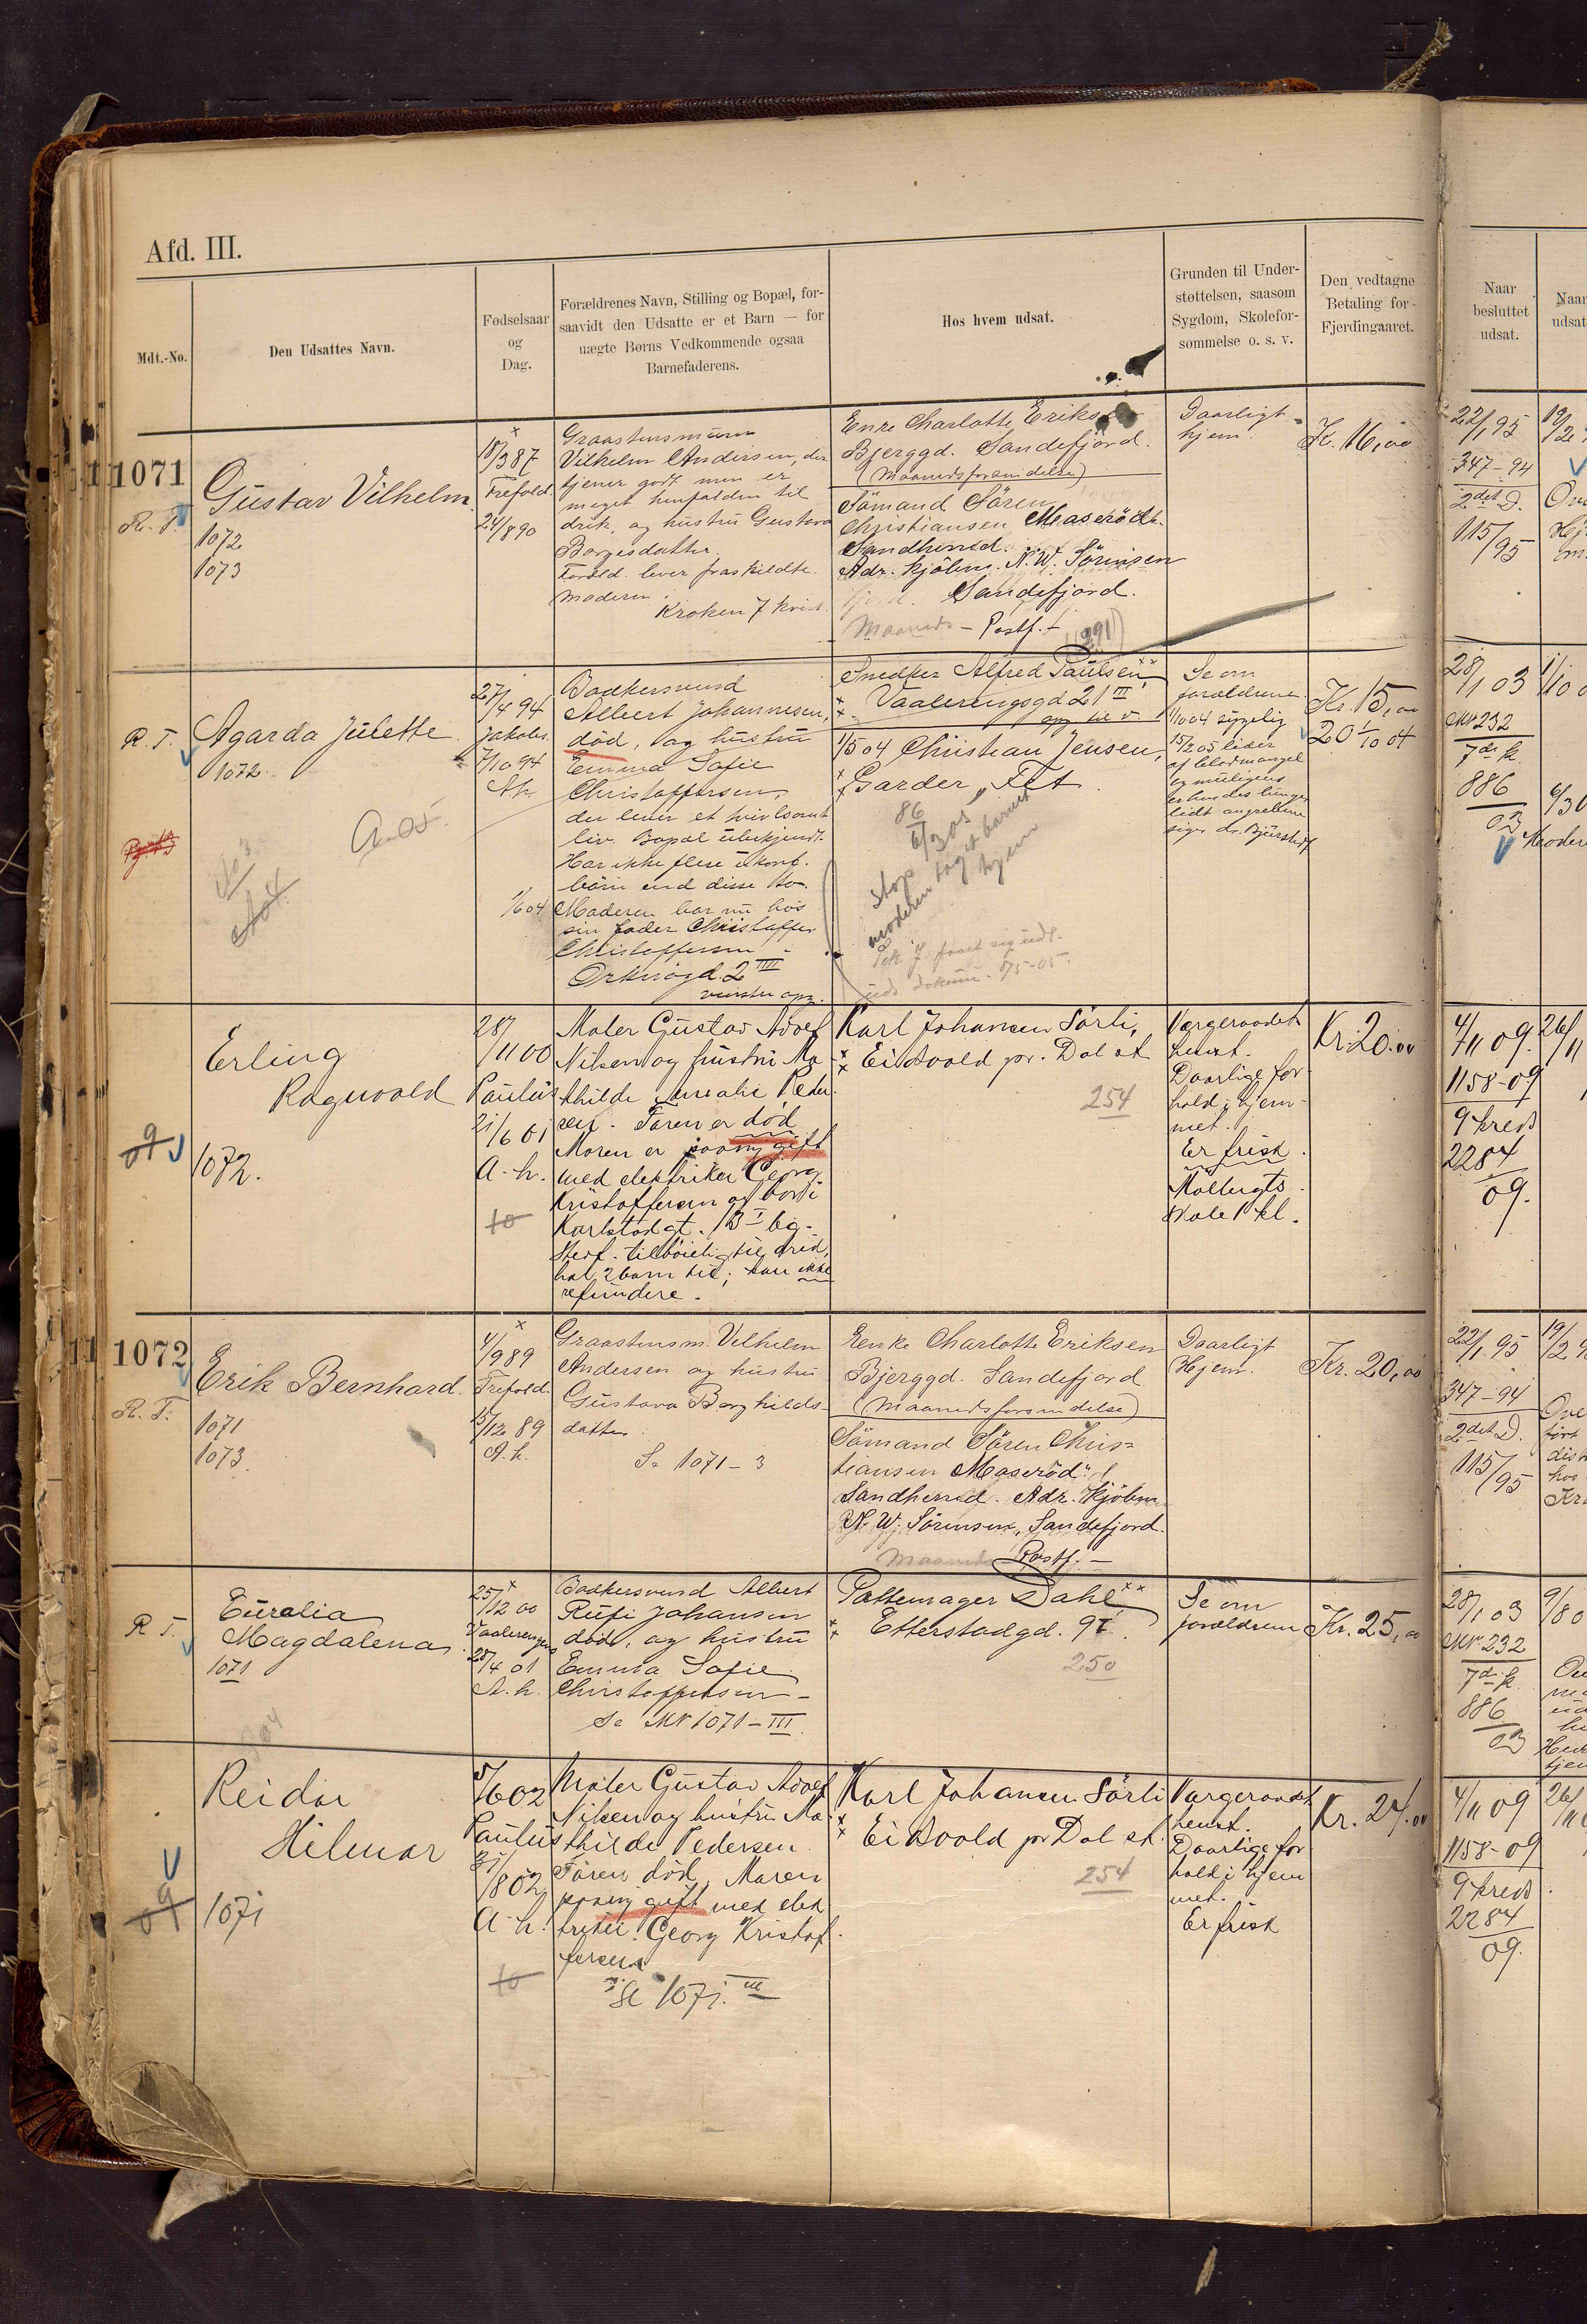 Afd. III.
Mdt.-No.
Den Udsattes Navn.
Fødselsaar
og
Dag.
Forældrenes Navn, Stilling og Bopæl, for-
saavidt den Udsatte er et Barn — for
uægte Børns Vedkommende ogsaa
Barnefaderens.
Hos hvem udsat.
Grunden til Under-
støttelsen, saasom
Sygdom, Skolefor-
sømmelse o. s. v.
Den vedtagne
Betaling for
Fjerdingaaret.
Naar
besluttet
udsat.
Naar
udsat
1071
R. T.
Gustav Vilhelm
1072
1073
18/3 87
Trefold.
24/8 90
Graastensmurer
Vilhelm Andersen, der
tjener godt men er
meget henfalden til
drik, og hustru Gustava
Borgesdatter.
Foræld. lever fraskildte.
Moderen i
Kroken 7 kvist
Enke Charlotte Eriksen
Bjerggd. Sandefjord.
(Maanedsforsendelse)
Sömand Sören
Christiansen Maseröd
Sandherred.
Adr. Kjöbm. N. W. Sörensen
Sandefjord.
Maaneds - Postf. +
(291)
Daarligt
hjem.
Kr. 16,00
22/1 95
347-94
2det D.
115/95
R. T.
Agarda Julette
1072.
27/4 94
Jakobs.
7/10 94
Ah.
Bødkersvend
Albert Johannesen,
död, og hustru
Emma Sofie
Christoffersen,
der lever et tvivlsomt
liv. Bopæl ubekjendt.
Har ikke flere ukonf.
börn end disse to.
1/6 04 Moderen bor nu hos
sin fader Christoffer
Christoffersen
Orknögd. 2 IIII
venstre opg.
Snedker Alfred Paulsen,
Vaalerengsgd 21 III
opg til v.
1/5 04 Christian Jensen,
Garder, Fet
86
6/3 05
Stop
moderen taget barnet
hjem
Se om
forældrene.
1/10 04 sygelig
15/2 05 lider
af blodmangel
og muligens
er hendes lunger
lidt angrebne
siger dr. Bjürstedt
Kr. 15,00
20 1/10 04
28/1 03
MN 232
7de k.
886
03
1/10 0
6/30
Moder
Erling
Ragnvald
1072.
28/11 00
Paulus
21/6 01
A. h.
Maler Gustav Adolf
Nilsen og hustru Ma-
thilde Amalie Peder-
sen. Faren er död
Moren er paany gift
med elektriker Georg
Kristoffersen og bor i
Karlstadgt. 13 I bg.
Stedf. tilböielig til drik,
har 2 barn til; kan ikke
refundere.
Karl Johansen Sörli,
Eidsvold pr. Dal st.
254
Værgeraadet
henst.
Daarlige for-
hold i hjem-
met.
Er frisk.
Möllergts.
skole 1 kl.
Kr. 20.00
4/11 09.
1158-09
9 kreds
2284
09.
26/11
1072
R. T.
Erik Bernhard.
1071
1073.
4/9 89
Trefold.
15/12 89
A. h.
Graastensm. Vilhelm
Andersen og hustru
Gustava Borghilds-
datter.
Se 1071 - 3
Enke Charlotte Eriksen
Bjerggd. Sandefjord
(Maanedsforsendelse)
Sömand Sören Chris-
tiansen Maseröd
Sandherred. Adr. Kjöbm.
N. W. Sörensen, Sandefjord.
Maaneds Postf. -
Daarligt
Hjem.
Kr. 20,00
22/1 95
347-94
2det D.
115/95
19/2
R. T.
Eurelia
Magdalena.
1071
25/12 00
Vaalerengens
28/4 01
A. h.
Bødkersvend Albert
Rufi Johansen
död, og hustru
Emma Sofie
Christoffersen -
Se MN 1071 - III.
Pottemager Dahl
Etterstadgd. 9 I.
250
Se om
forældrene
Kr. 25,00
28/1 03
MN 232
7de k.
886
03
9/80
Reidar
Hilmar
1071
5/6 02
Paulus
31/8 02
A. h.
Maler Gustav Adolf
Nilsen og hustru Ma-
thilde Pedersen
Faren död, Moren
paany gift med elek
triker Georg Kristof-
fersen
Se 1071. III
Karl Johansen Sörli
Eidsvold pr Dal st.
254
Værgeraadet
henst.
Daarlige for
hold i hjem
met.
Er frisk
Kr. 24.00
4/11 09
1158-09
9 kreds
2284
09.
26/11